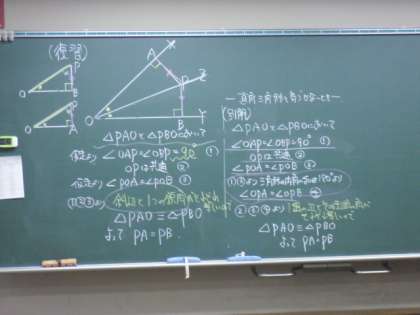 (復習)
P
O
B
P
O
A
X
A
P
Z
O
B
Y
△PAOと△PBOにおいて
仮定より ∠OAP=∠OBP=90° ①
OPは共通 ②
仮定より ∠POA=∠POB ③
①②③より 斜辺と1つの鋭角がそれぞれ等しいので
△PAO≡△PBO
よって PA=PB.
(別解)
△PAOと△PBOにおいて
∠OAP=∠OBP=90° ①
OPは共通 ②
∠POA=∠POB ③
①③より 三角形の内角の
∠OPA=∠OPB ④
②③④より
△PAO≡△PBO
よって PA=PB